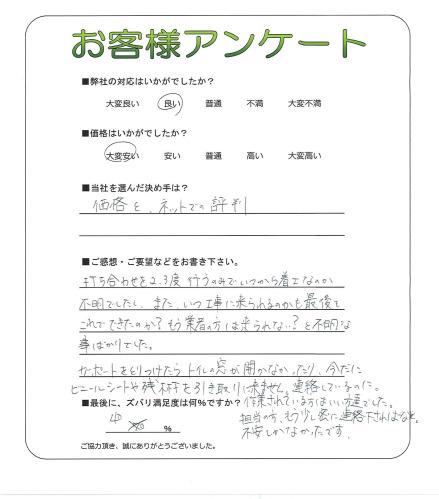 お客様アンケート
■弊社の対応はいかがでしたか?
大変良い 良い 普通 不満 大変不満
■価格はいかがでしたか?
大変安い 安い 普通 高い 大変高い
■当社を選んだ決め手は?
価格と、ネットでの評判
■ご感想・ご要望などをお書き下さい。
打ち合わせを2.3度行うのみでいつから着工なのか
不明でしたし、また、いつ工事に来られるのかも最後も
これでできたのか?もう業者の方は来られない?と不明な
事ばかりでした。
カーポートをとりつけたらトイレの窓が開かなかったり、今だに
ビニールシートや残材を引き取りに来ません。連絡しているのに。
■最後に、ズバリ満足度は何%ですか?
作業されている方はいい方達でした。
担当の方、もう少し密に連絡下さればなと。
不安しかなかったです。
40 %
ご協力頂き、誠にありがとうございました。